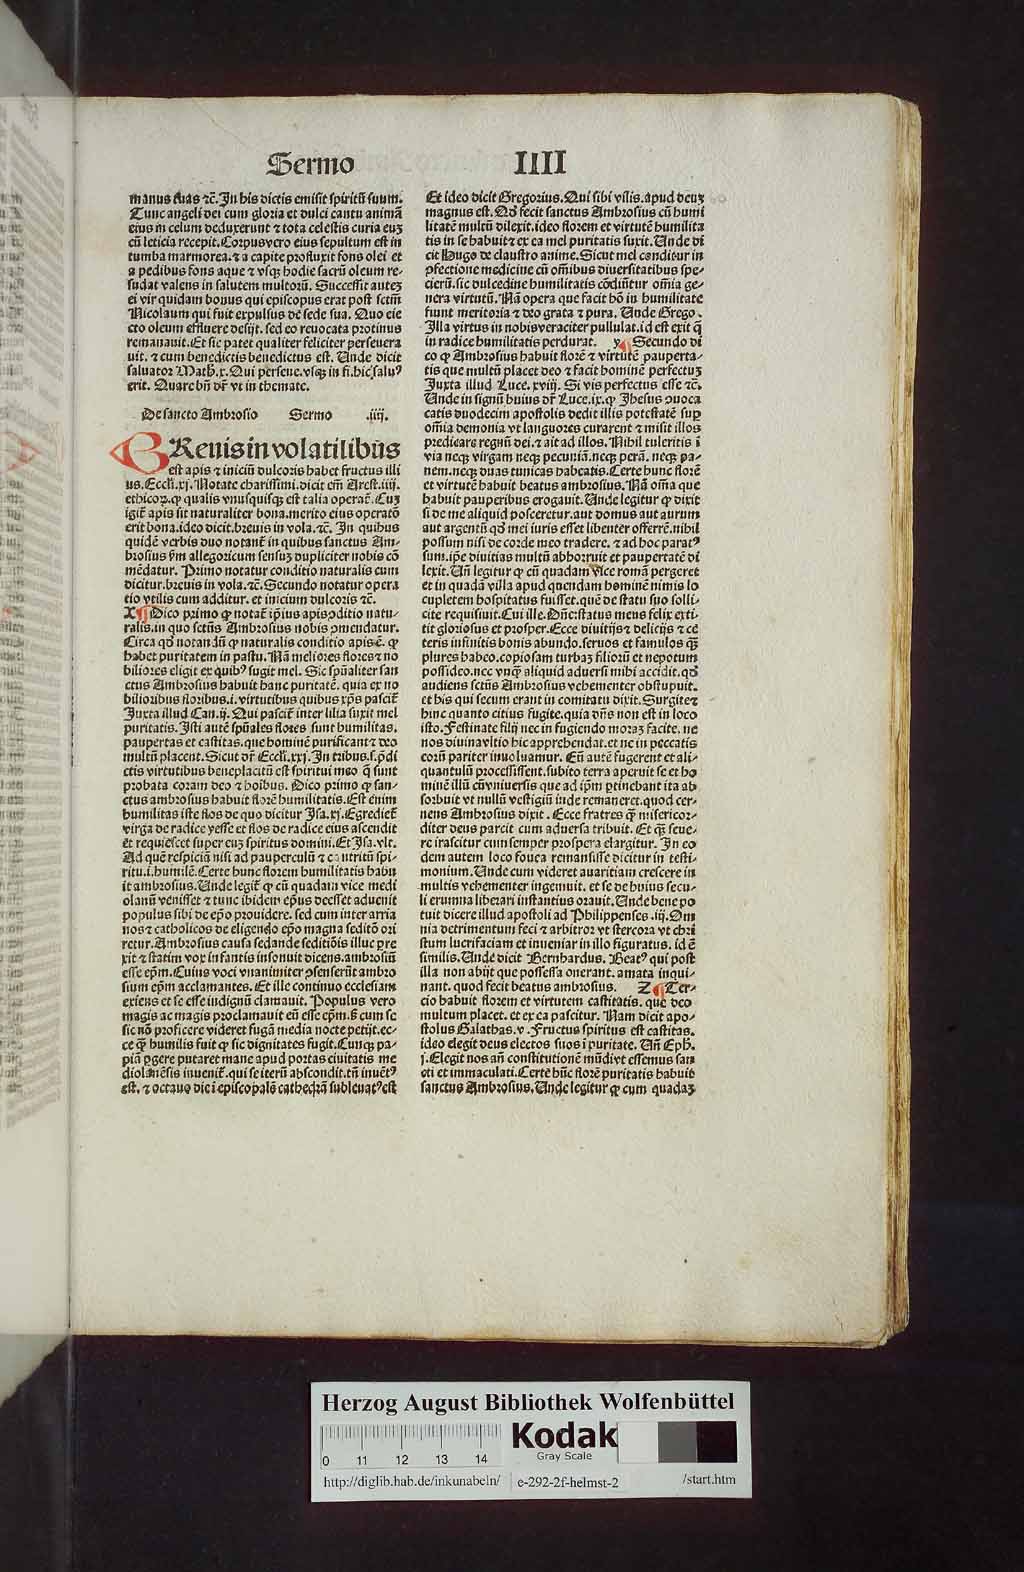 Sermo IIII
manus tuas ⁊c̄. In his dictis emisit spiritū suum.
Tunc angeli dei cum gloria et dulci cantu animā
eius in celum deduxerunt ⁊ tota celestis curia euꝫ
cū leticia recepit. Corpus vero eius sepultum est in
tumba marmorea. ⁊ a capite profluxit fons olei et
a pedibus fons aque ⁊ vsqꝫ hodie sacrū oleum re-
sudat valens in salutem multorū. Successit auteꝫ
ei vir quidam bonus qui episcopus erat post sctm̄
Nicolaum qui fuit expulsus de sede sua. Quo eie
cto oleum effluere desijt. sed eo reuocata protinus
remanauit. Et sic patet qualiter feliciter perseuera
uit. ⁊ cum benedictis benedictus est. Unde dicit
saluator Math̄.x. Qui perseue. vsqꝫ in fi. hic saluꝰ
erit. Quare bn̄ dr̄ vt in themate.
De sancto Ambrosio Sermo .iiij.
BReuis in volatilibus
est apis ⁊ iniciū dulcoris habet fructus illi
us. Eccli.xj. Notate charissimi. dicit em̄ Arest.iiij.
ethicoꝝ. ꝙ qualis vnusquisqꝫ est talia operat̄. Cuꝫ
igit̄ apis sit naturaliter bona. merito eius operatō
erit bona. ideo dicit. breuis in vola. ⁊c̄. In quibus
quidē verbis duo notant̄ in quibus sanctus Am-
brosius ẜm allegoricum sensuꝫ dupliciter nobis cō
mēdatur. Primo notatur conditio naturalis cum
dicitur. breuis in vola. ⁊c̄. Secundo notatur opera
tio vtilis cum additur. et inicium dulcoris ⁊c̄.
X ¶ Dico primo ꝙ notat̄ ip̄ius apis ↄditio natu-
ralis. in quo sctūs Ambrosius nobis ↄmendatur.
Circa qd̄ norandū ꝙ naturalis conditio apis ē. ꝙ
habet puritatem in pastu. Nā meliores flores ⁊ no
biliores eligit ex quibꝰ sugit mel. Sic spūaliter san
ctus Ambrosius habuit hanc puritatē. quia ex no
bilioribus floribus .i. virtutibus quibus xp̄s pascit̄
Juxta illud Can.ij. Qui pascit̄ inter lilia suxit mel
puritatis. Isti autē spūales flores sunt humilitas.
paupertas et castitas. que hominē purificant ⁊ deo
multū placent. Sicut dr̄ Eccli.xxj. In tribus .s. p̄di
ctis virtutibus beneplacitū est spiritui meo q̄ sunt
probata coram deo ⁊ hoībus. Dico primo ꝙ san-
ctus ambrosius habuit florē humilitatis. Est enim
humilitas iste flos de quo dicitur Isa.xj. Egrediet̄
virga de radice yesse et flos de radice eius ascendit
et requiescet super euꝫ spiritus domini. Et Isa.vlt.
Ad quē respiciā nisi ad pauperculū ⁊ contritū spi-
ritu .i. humilē. Certe hunc florem humilitatis habu
it ambrosius. Unde legit̄ ꝙ cū quadam vice medi
olanū venisset ⁊ tunc ibidem ep̄us deesset aduenit
populus sibi de ep̄o prouidere. sed cum inter arria
nos ⁊ catholicos de eligendo ep̄o magna seditō ori
retur. Ambrosius causa sedande seditiōis illuc ꝑre
xit ⁊ statim vox infantis insonuit dicens. ambrosiū
esse ep̄m. Cuius voci vnanimiter ↄsenserūt ambro
sium ep̄m acclamantes. Et ille continuo ecclesiam
exiens et se esse indignū clamauit. Populus vero
magis ac magis proclamauit eū esse ep̄m. ẜ cum se
sic nō proficere videret fugā media nocte petijt. ec-
ce q̄ humilis fuit ꝙ sic dignitates fugit. Cunqꝫ pa-
piā ꝑgere putaret mane apud portas ciuitatis me
diolanēsis inuenit̄. qui se iterū abscondit. tn̄ inuētꝰ
est. ⁊ octauo die ī episcopalē cathedrā subleuatꝰ est
Et ideo dicit Gregorius. Qui sibi vilis. apud deuꝫ
magnus est. Qd̄ fecit sanctus Ambrosius cū humi
litatē multū dilexit. ideo florem et virtutē humilita
tis in se habuit ⁊ ex ea mel puritatis suxit. Unde di
cit Hugo de claustro anime. Sicut mel conditur in
ꝓfectione medicine cū om̄ibus diuersitatibus spe-
cierū. sic dulcedine humilitatis cōdiūtur om̄ia ge-
nera virtutū. Nā opera que facit hō in humilitate
fiunt meritoria ⁊ deo grata ⁊ pura. Unde Grego.
Illa virtus in nobis veraciter pullulat. id est exit q̄
in radice humilitatis perdurat. y ¶ Secundo di
co ꝙ Ambrosius habuit florē ⁊ virtutē pauperta-
tis que multū placet deo ⁊ facit hominē perfectuꝫ
Juxta illud Luce.xviij. Si vis perfectus esse ⁊c̄.
Unde in signū huius dr̄ Luce.ix. ꝙ Jhesus ↄuoca
catis duodecim apostolis dedit illis potestatē suꝑ
om̄ia demonia vt languores curarent ⁊ misit illos
predicare regnū dei. ⁊ ait ad illos. Nihil tuleritis ī
via neqꝫ virgam neqꝫ pecuniā. neqꝫ perā. neqꝫ pa-
nem. neqꝫ duas tunicas habeatis. Certe hunc florē
et virtutē habuit beatus ambrosius. Nā om̄a que
habuit pauperibus erogauit. Unde legitur ꝙ dixit
si de me aliquid posceretur. aut domus aut aurum
aut argentū qd̄ mei iuris esset libenter offerrē. nihil
possum nisi de corde meo tradere. ⁊ ad hoc paratꝰ
sum. ip̄e diuitias multū abhorruit et paupertatē di
lexit. Un̄ legitur ꝙ cū quadam vice romā pergeret
et in quadā villa apud quendam hominē nimis lo
cupletem hospitatus fuisset. quē de statu suo solli-
cite requisiuit. Cui ille. Dn̄e: status meus felix exti-
tit gloriosus et prosper. Ecce diuitijs ⁊ delicijs ⁊ ce
teris infinitis bonis abundo. seruos et famulos qꝫ
plures habeo. copiosam turbaꝫ filiorū et nepotum
possideo. nec vnqꝫ aliquid aduersi mihi accidit. qd̄
audiens sctūs Ambrosius vehementer obstupuit.
et his qui secum erant in comitatu dixit. Surgite ⁊
hinc quanto citius fugite. quia dn̄s non est in loco
isto. Festinate filij nec in fugiendo moraꝫ facite. ne
nos diuina vltio hic apprehendat. et ne in peccatis
eorū pariter inuoluamur. Cū autē fugerent et ali-
quantulū processissent. subito terra aperuit se et ho
minē illū cū vniuersis que ad ip̄m ꝑtinebant ita ab
sorbuit vt nullū vestigiū inde remaneret. quod cer-
nens Ambrosius dixit. Ecce fratres q̄ misericor-
diter deus parcit cum aduersa tribuit. Et qꝫ seue-
re irascitur cum semper prospera elargitur. In eo
dem autem loco fouea remansisse dicitur in testi-
monium. Unde cum videret auaritiam crescere in
multis vehementer ingemuit. et se de huius secu-
li erumna liberari instantius orauit. Unde bene po
tuit dicere illud apostoli ad Philippenses .iij. Om
nia detrimentum feci ⁊ arbitror vt stercora vt chri
stum lucrifaciam et inueniar in illo figuratus. id ē
similis. Unde dicit Bernhardus. Beatꝰ qui post
illa non abijt que possessa onerant. amata inqui-
nant. quod fecit beatus ambrosius. Z ¶ Ter-
cio habuit florem et virtutem castitatis. que deo
multum placet. et ex ea pascitur. Nam dicit apo-
stolus Galathas.v. Fructus spiritus est castitas.
ideo elegit deus electos suos ī puritate. Un̄ Eph̄.
j. Elegit nos an̄ constitutionē mūdi vt essemus san
cti et immaculati. Certe hūc florē puritatis habuit
sanctus Ambrosius. Unde legitur ꝙ cum quadaꝫ
Herzog August Bibliothek Wolfenbüttel
0 11 12 13 14
Kodak
Gray Scale
http://diglib.hab.de/inkunabeln/ e-292-2f-helmst-2 /start.htm